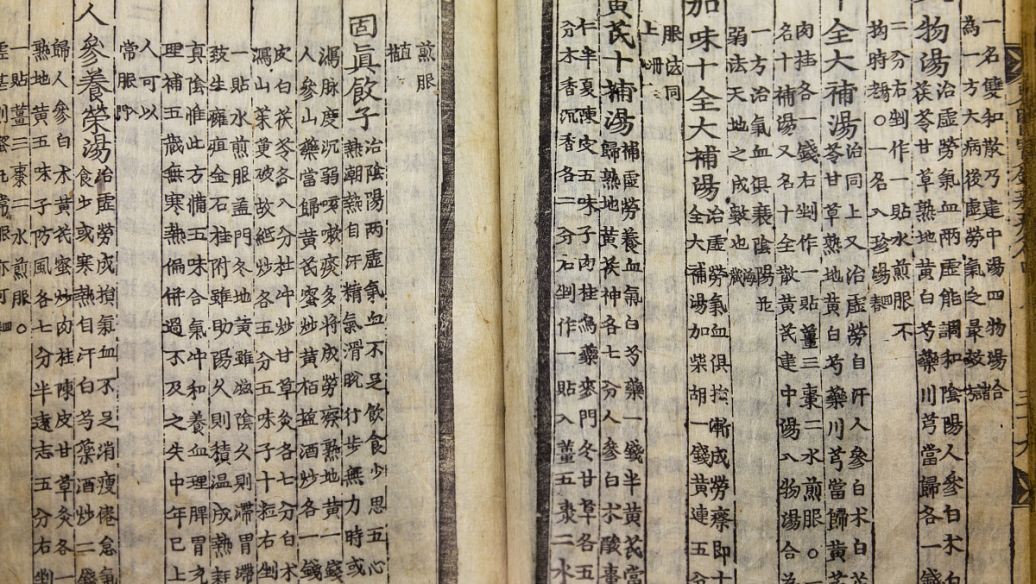 一名雙和散乃建中湯四物湯合
為一方大病後虛勞氣之最效
物湯
治虛勞氣血兩虛能調和陰陽人參白朮
茯苓甘草熟地黃白芍藥川芎當歸各一錢
二分右剉作一貼水煎服不
拘時○一名八珍湯
全大補湯
治同上又治虛勞自汗人參白朮白
苓甘草熟地黃白芍藥川芎當歸黃芪
肉桂各一錢右剉作一貼薑三棗二水煎服○
名十補湯又名十全散黃芪建中湯八物湯合
一方治氣血俱衰陰陽並
弱法天地之成數也海藏
加味十全大補湯
治虛勞氣血俱損漸成勞瘵即十
全大補湯加柴胡一錢黃連五分
服法同
上
黃芪十補湯
補虛勞養血氣白芍藥一錢半黃芪當
歸熟地黃茯神各七分人參白朮酸棗
半夏陳皮五味子肉桂烏藥麥門冬甘草各五
分木香沉香各二分右剉作一貼入薑五棗二水
煎服
固眞飮子
治陰陽兩虛氣血不足飮食少思五心
熱潮熱自汗精氣滑脫行步無力時或
瀉脈度沉弱嗽痰多將成勞瘵熟地黃一錢
人參山藥當歸黃芪蜜炒黃栢鹽酒炒各一錢
皮白茯苓各八分杜冲炒甘草灸各七分白朮
瀉山茱萸破故紙炒各五分五味子十粒右剉
一貼水煎服盖門冬地黃雖滋陰久則滯胃
致生癰疽金石桂附雖助陽久則積溫成熱
眞陰惟此方備五味合氣冲和養血理脾胃充
理補五藏無寒熱偏併過不及之失中年已上
人可以
常服
人參養榮湯
治虛勞成損氣血不足消瘦倦怠氣
食少或寒熱自汗白芍藥酒炒二錢
歸人參白朮黃芪蜜炒肉桂陳皮甘草灸各一
熟地黃五味子防風各七分半遠志五分右剉
一貼薑三棗二水煎服○